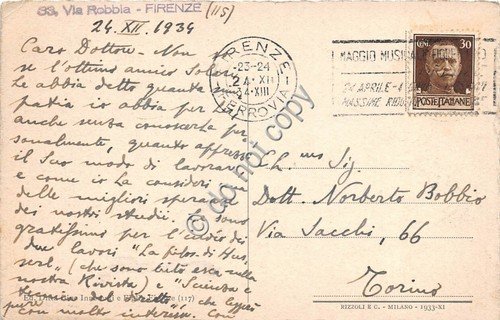 33, Via Robbia - FIRENZE (115)
24. XII. 1934
Caro Dottore - Non so
se l'ottimo amico Solari
Le abbia detto quanta sim
patia io abbia per Lei
anche senza conoscerLa per
sonalmente, quanto apprezzi
il Suo modo di lavorare
e come io La consideri una
delle migliori speranze
dei nostri studii. Le sono
gratissimo per l'invio dei
due lavori "La filos. di Hus
serl" (che sono lieto esca nella
nostra Rivista) e "Scienza e
tecnica del diritto", che leggerò
pure con molto interesse. Con
FIRENZE
23-24
24 XII
34-XIII
FERROVIA
MAGGIO MUSICALE
APRILE - 4
MASSIME RIDUZ
CENT. 30
POSTE ITALIANE
Ch.mo Sig.
Dott. Norberto Bobbio
Via Sacchi, 66
Torino
(117)
RIZZOLI E C. - MILANO - 1933-XI
do not copy